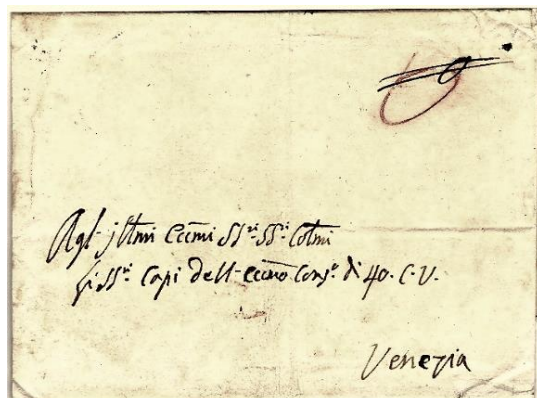 Agl' Jllmi Eccmi SSri SSri Colmi
li SSri Capi dell' Eccmo Consº di 40. C. V.
Venezia